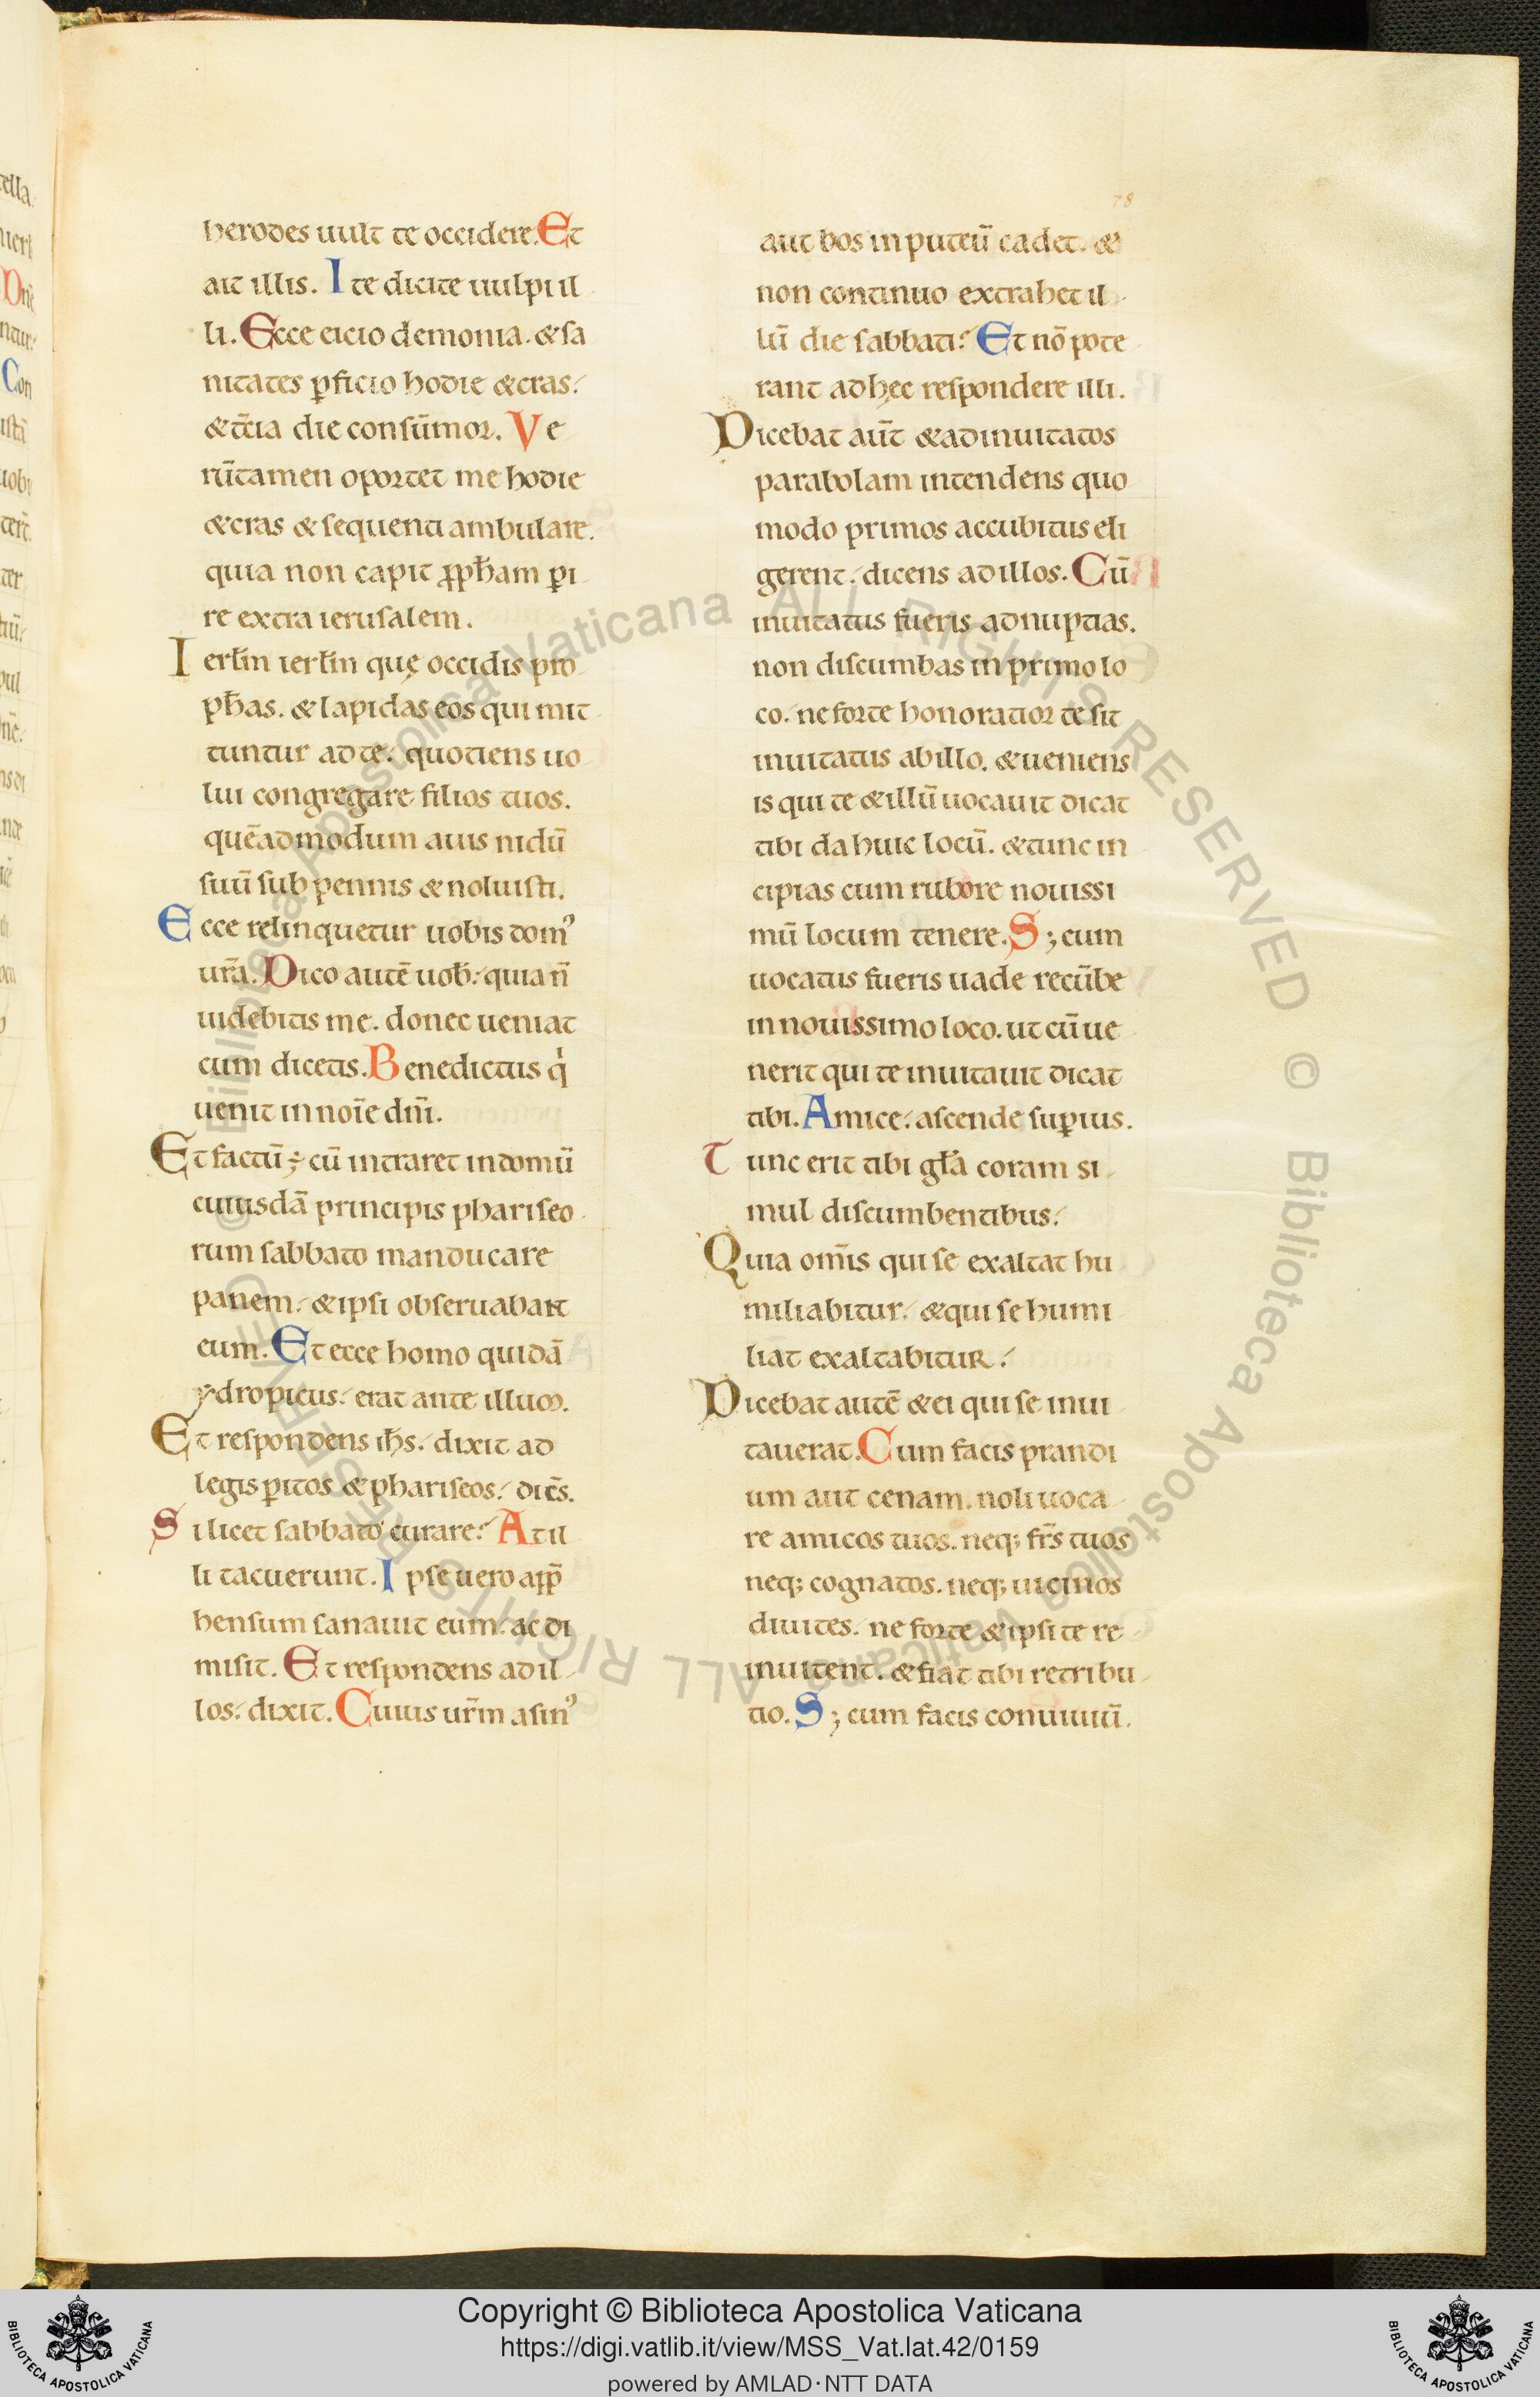 78
herodes uult te occidere. Et
ait illis. Ite dicite uulpi il
li. Ecce eicio demonia. & sa
nitates ꝑficio hodie & cras.
& t̄cia die consūmor. Ve
rūtamen oportet me hodie
& cras & sequenti ambulare.
quia non capit ꝓph̄am ꝑi
re extra ierusalem.
Ierłm ierłm quę occidis pro
ph̄as. & lapidas eos qui mit
tuntur ad te. quotiens uo
lui congregare filios tuos.
quēadmodum auis nidū
suū sub pennis & noluisti.
Ecce relinquetur uobis domꝰ
ur̄a. Dico autē uob̄. quia n̄
uidebitis me. donec ueniat
cum dicetis. Benedictus q̇
uenit in noīe dn̄i.
Et factū ÷ cū intraret in domū
cuiusdā principis phariseo
rum sabbato manducare
panem. & ipsi obseruabant
eum. Et ecce homo quidā
ydropicus. erat ante illum.
Et respondens ih̄s. dixit ad
legis ꝑitos & phariseos. dic̄s.
Si licet sabbato curare? At il
li tacuerunt. Ipse uero app̄
hensum sanauit eum. ac di
misit. Et respondens ad il
los. dixit. Cuius ur̄m asinꝰ
aut bos in puteū cadet. &
non continuo extrahet il
lū die sabbati? Et nō pote
rant ad hęc respondere illi.
Dicebat aūt & ad inuitatos
parabolam intendens quo
modo primos accubitus eli
gerent. dicens ad illos. Cū
inuitatus fueris ad nuptias.
non discumbas in primo lo
co. ne forte honoratior te sit
inuitatus ab illo. & ueniens
is qui te & illū uocauit dicat
tibi da huic locū. & tunc in
cipias cum rubore nouissi
mū locum tenere. S; cum
uocatus fueris uade recūbe
in nouissimo loco. ut cū ue
nerit qui te inuitauit dicat
tibi. Amice. ascende suꝑius.
Tunc erit tibi gła coram si
mul discumbentibus.
Quia om̄is qui se exaltat hu
miliabitur. & qui se humi
liat exaltabitur.
Dicebat autē & ei qui se inui
tauerat. Cum facis prandi
um aut cenam. noli uoca
re amicos tuos. neq; fr̄s tuos
neq; cognatos. neq; uicinos
diuites. ne forte & ipsi te re
inuitent. & fiat tibi retribu
tio. S; cum facis conuiuiū.
© Biblioteca Apostolica Vaticana ALL RIGHTS RESERVED © Biblioteca Apostolica Vaticana ALL RIGHTS RESERVED
BIBLIOTECA APOSTOLICA VATICANA
Copyright © Biblioteca Apostolica Vaticana
https://digi.vatlib.it/view/MSS_Vat.lat.42/0159
powered by AMLAD·NTT DATA
BIBLIOTECA APOSTOLICA VATICANA